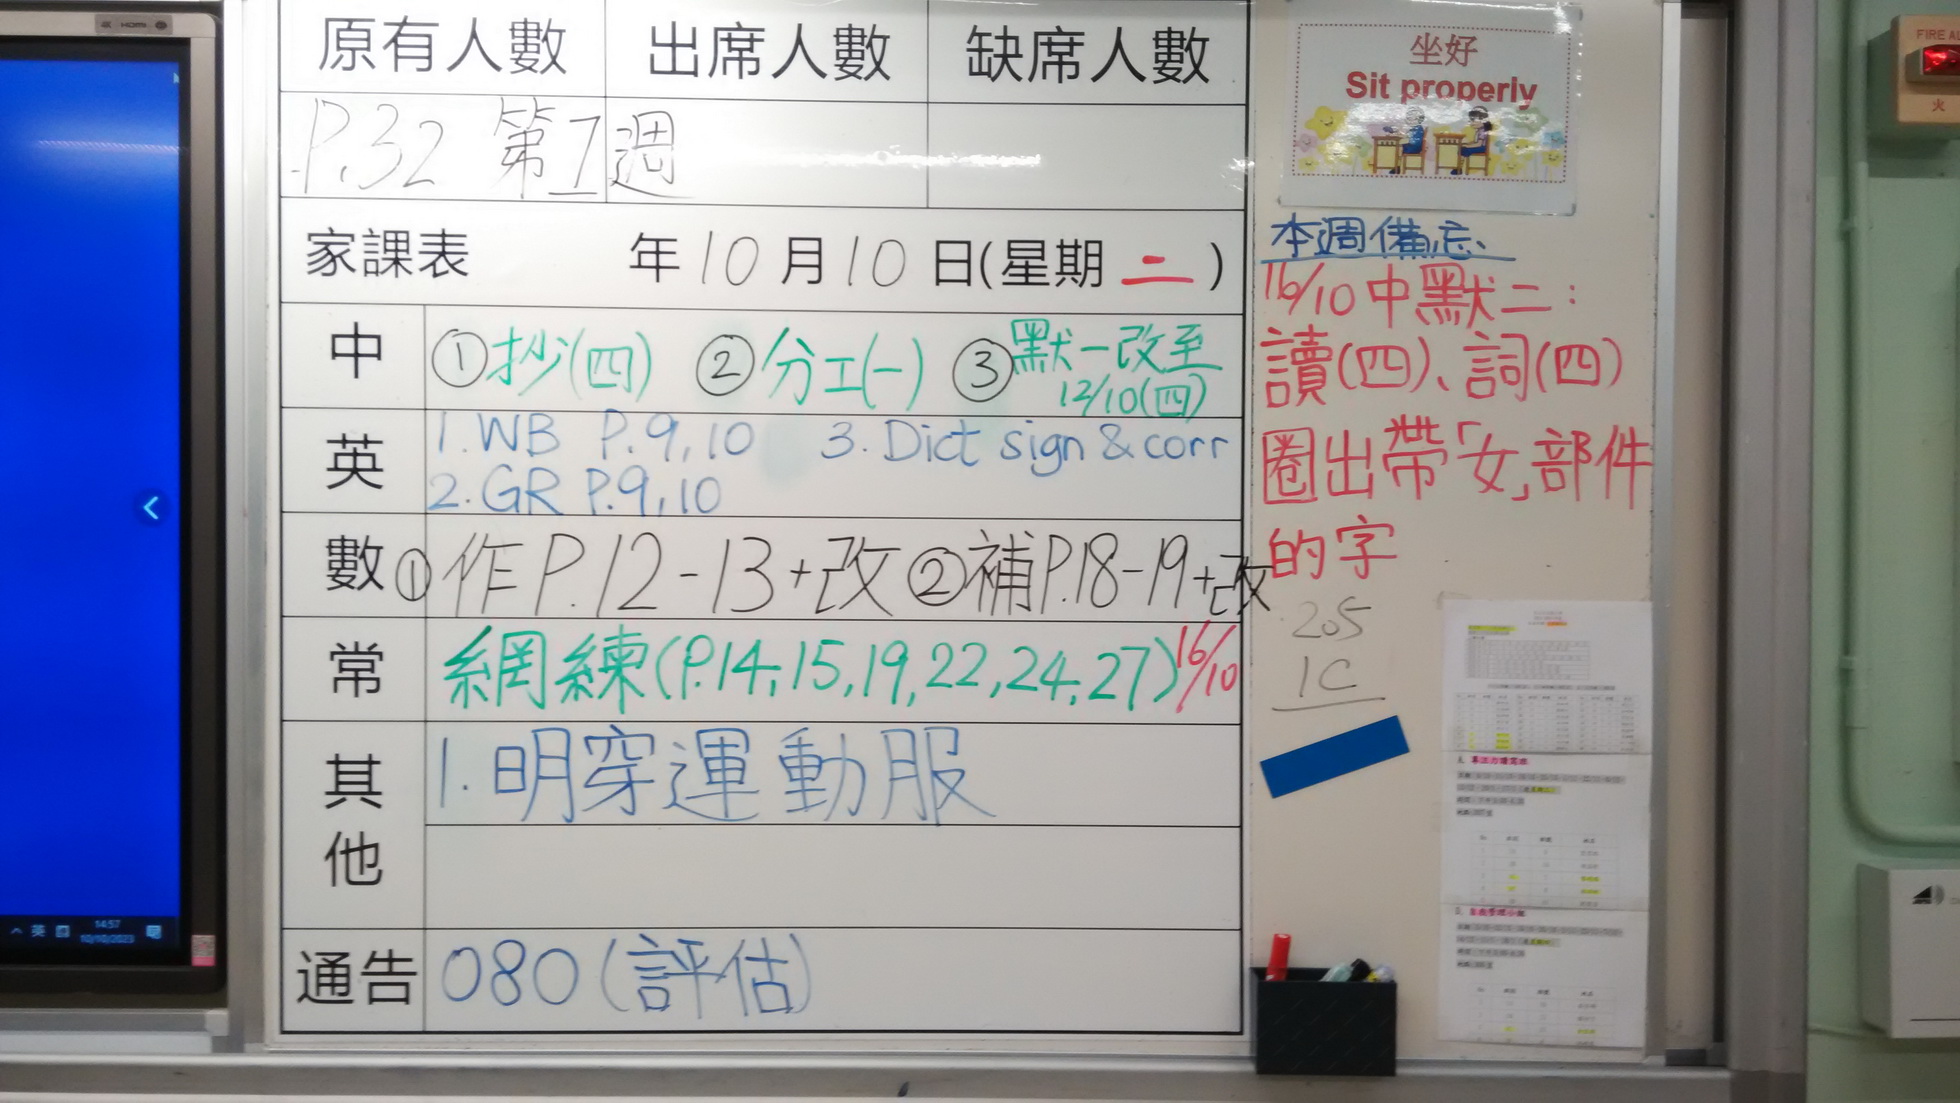 原有人數 出席人數 缺席人數
P.32 第7週
家課表 年10月10日(星期二)
中 ①抄(四) ②分工(一) ③默一改至
12/10(四)
英 1.WB P.9,10 3.Dict sign & corr
2.GR P.9,10
數 ①作P.12-13+改 ②補P.18-19+改
常 網練(P.14,15,19,22,24,27) 16/10
其他 1.明穿運動服
通告 080(評估)
坐好
Sit properly
本週備忘
16/10中默二:
讀(四)、詞(四)
圈出帶「女」部件
的字
205
1C
FIRE AL
火
HDMI
英
14:57
10/10/2023